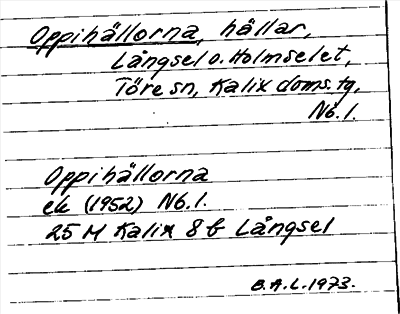 Oppihällorna, hällar,
Långsel o. Holmselet,
Töre sn, Kalix doms.tg.
Nb. l.
Oppihällorna
ek (1952) Nb. l.
25 M Kalix 8 b Långsel
B.A.L. 1973.